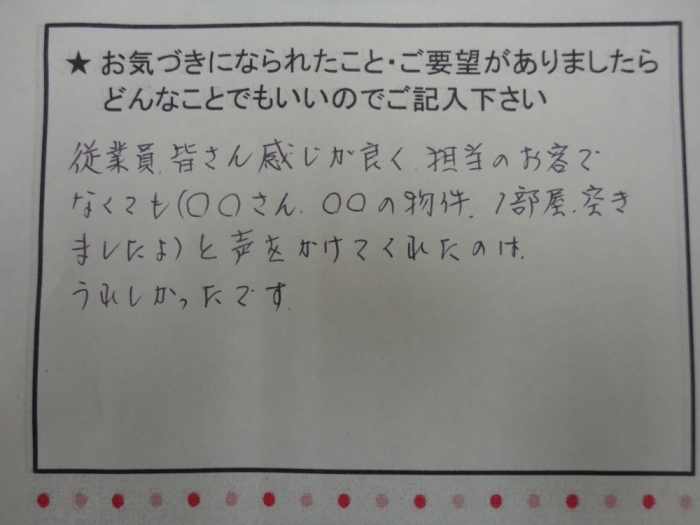 ★ お気づきになられたこと・ご要望がありましたら
どんなことでもいいのでご記入下さい
従業員、皆さん感じが良く、担当のお客で
なくても(〇〇さん、〇〇の物件、1部屋、空き
ましたよ)と声をかけてくれたのは、
うれしかったです。